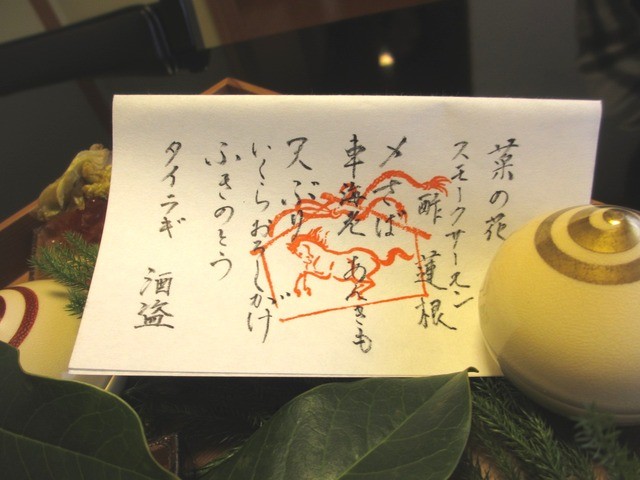 菜の花
スモークサーモン
酢蓮根
〆さば
車海老 あんきも
天ぶり
いくらおろしがけ
ふきのとう
タイラギ 酒盗